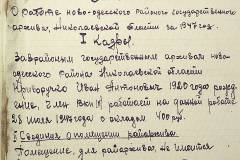 О работе ново-одесского районого государственного
архива, Николаевской области за 1947 год.
I Кадры.
Заврайонным государственным архивом ново-
одесского района Николаевской области
Криворучко Иван Антонович 1920 года рожде-
ние, член ВКП(б) работает на данной работе
28 июля 1947 года с окладом 400 руб.
Сведения о помещении райархива.
Помещение, для райархива не имеется